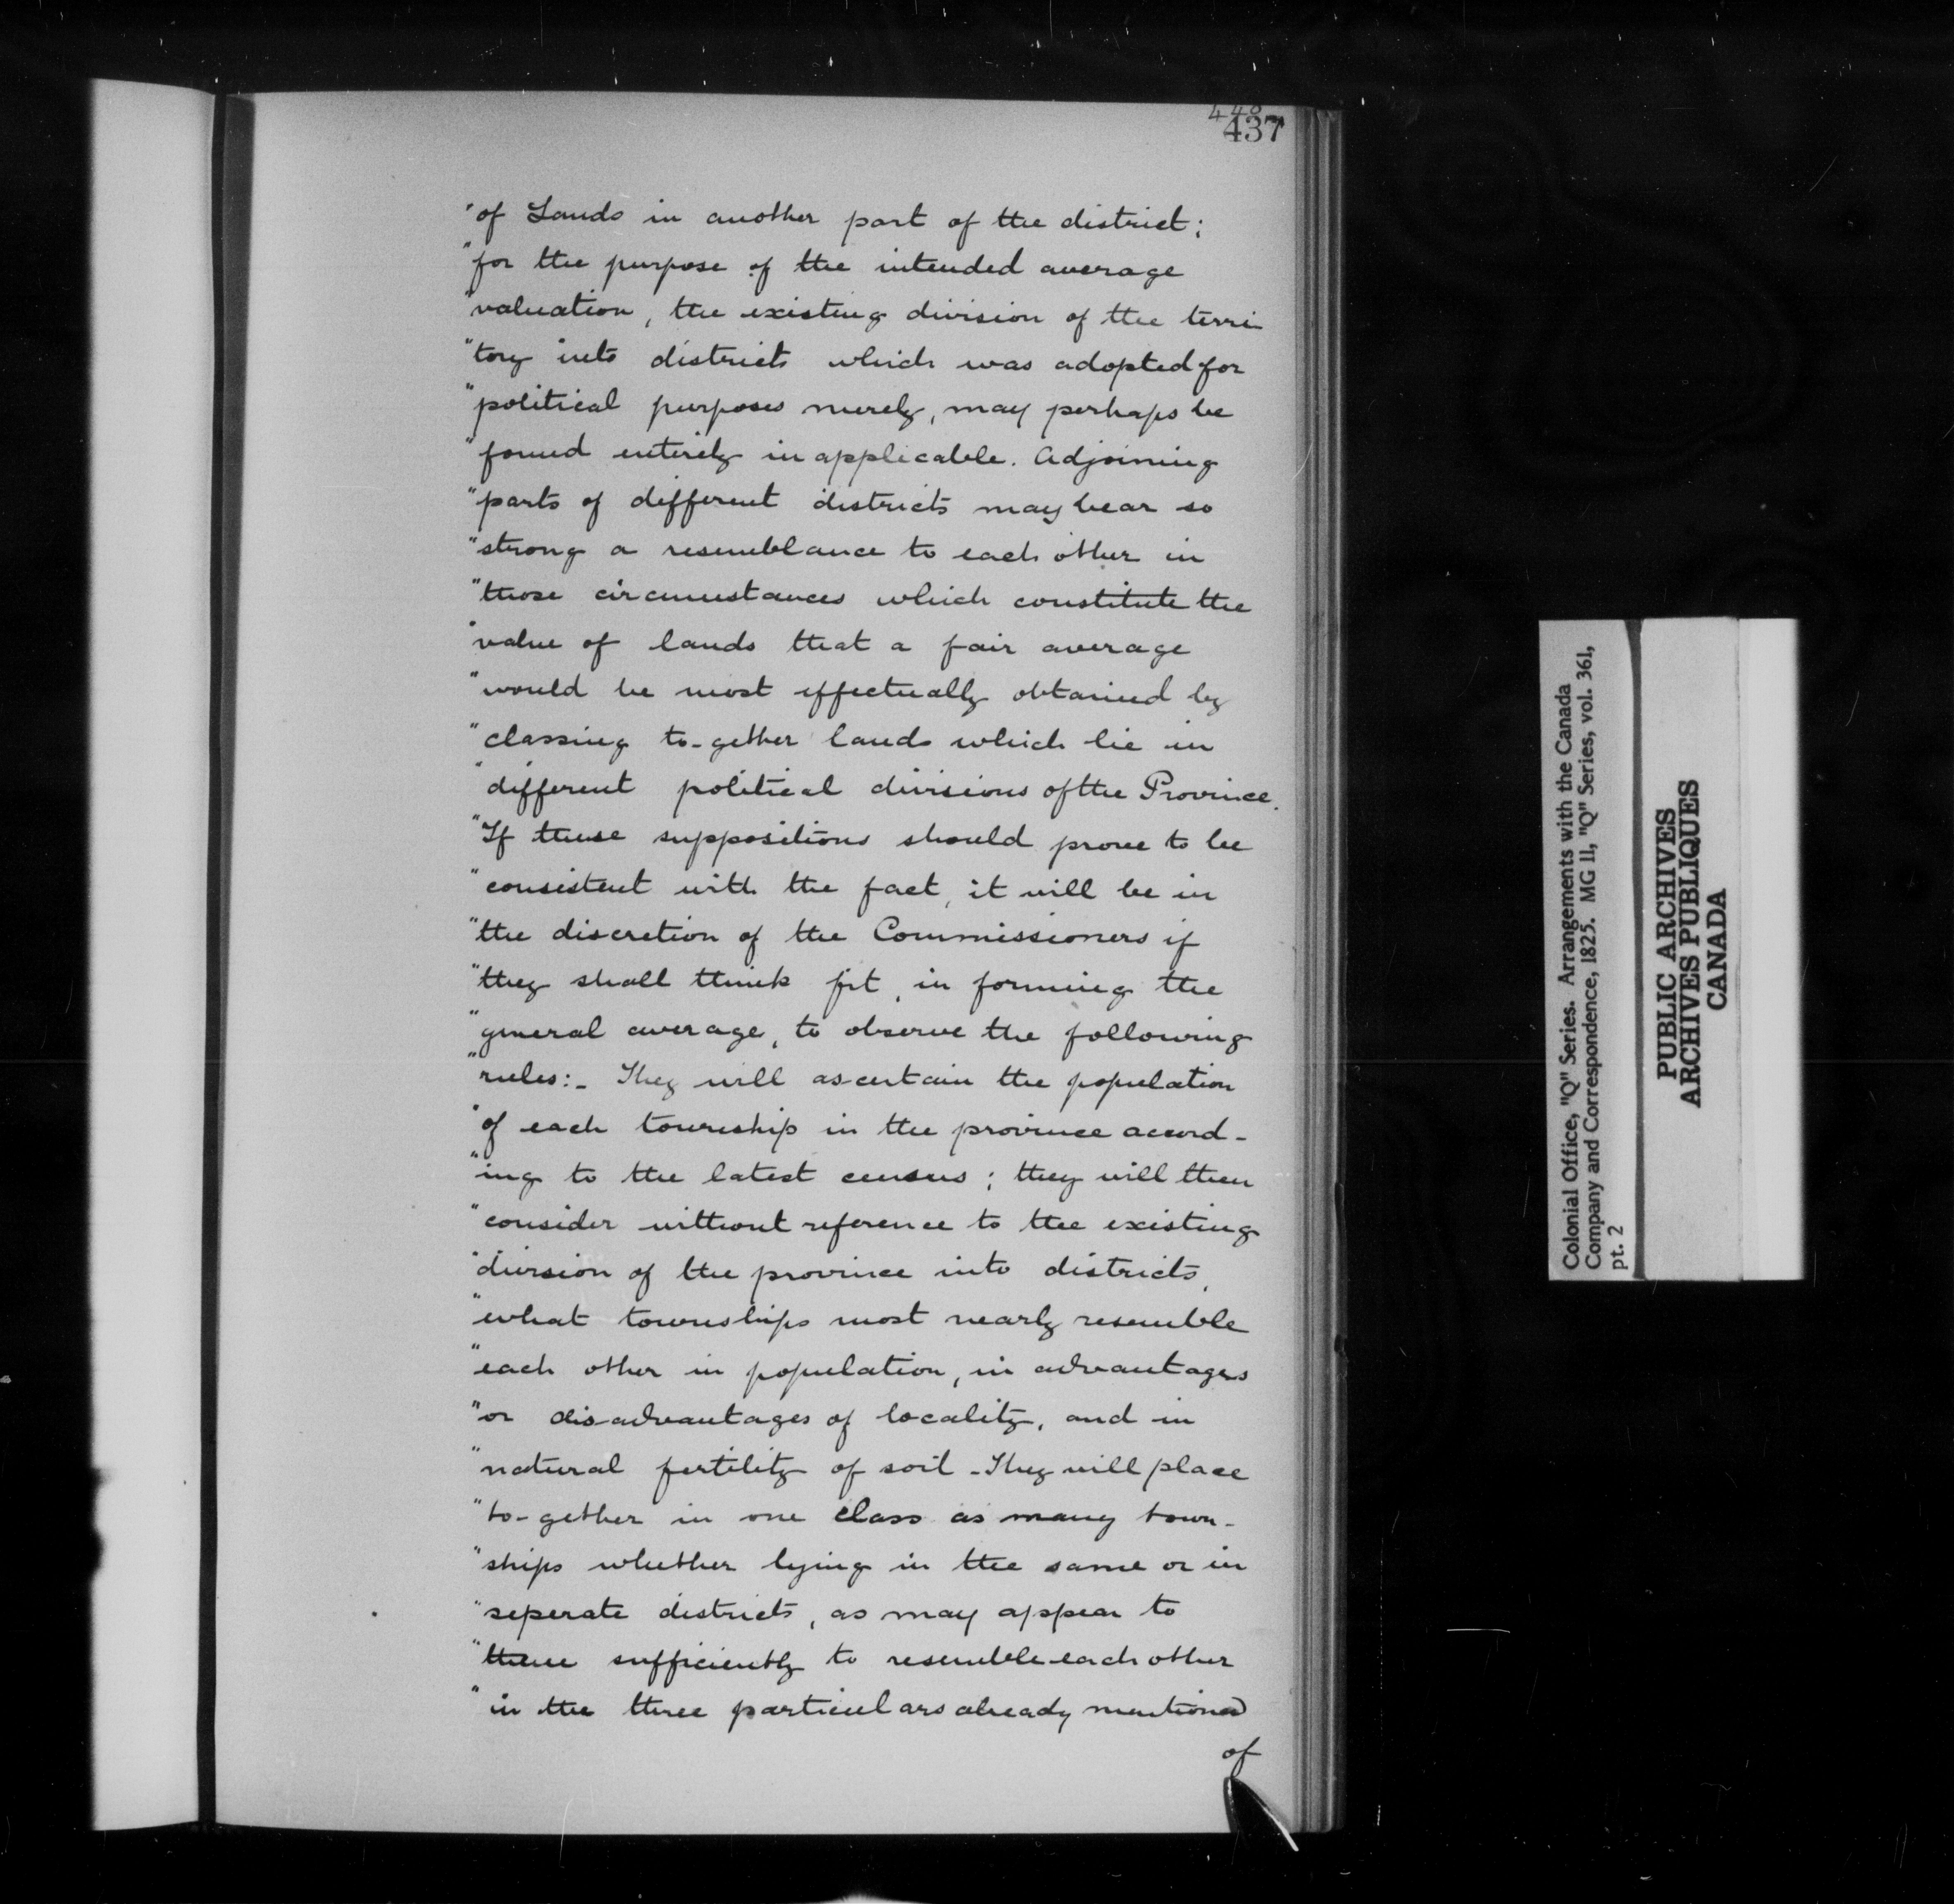 448
437
"of Lands in another part of the district;
"for the purpose of the intended average
"valuation, the existing division of the terri-
"tory into districts which was adopted for
"political purposes merely, may perhaps be
"found entirely inapplicable. Adjoining
"parts of different districts may bear so
"strong a resemblance to each other in
"those circumstances which constitute the
"value of lands that a fair average
"would be most effectually obtained by
"classing to-gether lands which lie in
"different political divisions of the Province.
"If these suppositions should prove to be
"consistent with the fact, it will be in
"the discretion of the Commissioners if
"they shall think fit, in forming the
"general average, to observe the following
"rules:- They will ascertain the population
"of each township in the province accord-
"ing to the latest census; they will then
"consider without reference to the existing
"division of the province into districts,
"what townships most nearly resemble
"each other in population, in advantages
"or dis-advantages of locality, and in
"natural fertility of soil - They will place
"to-gether in one class as many town-
"ships whether lying in the same or in
"seperate districts, as may appear to
"them sufficiently to resemble each other
"in the three particulars already mentioned
of
Colonial Office, "Q" Series. Arrangements with the Canada
Company and Correspondence, 1825. MG 11, "Q" Series, vol. 361,
pt. 2
PUBLIC ARCHIVES
ARCHIVES PUBLIQUES
CANADA